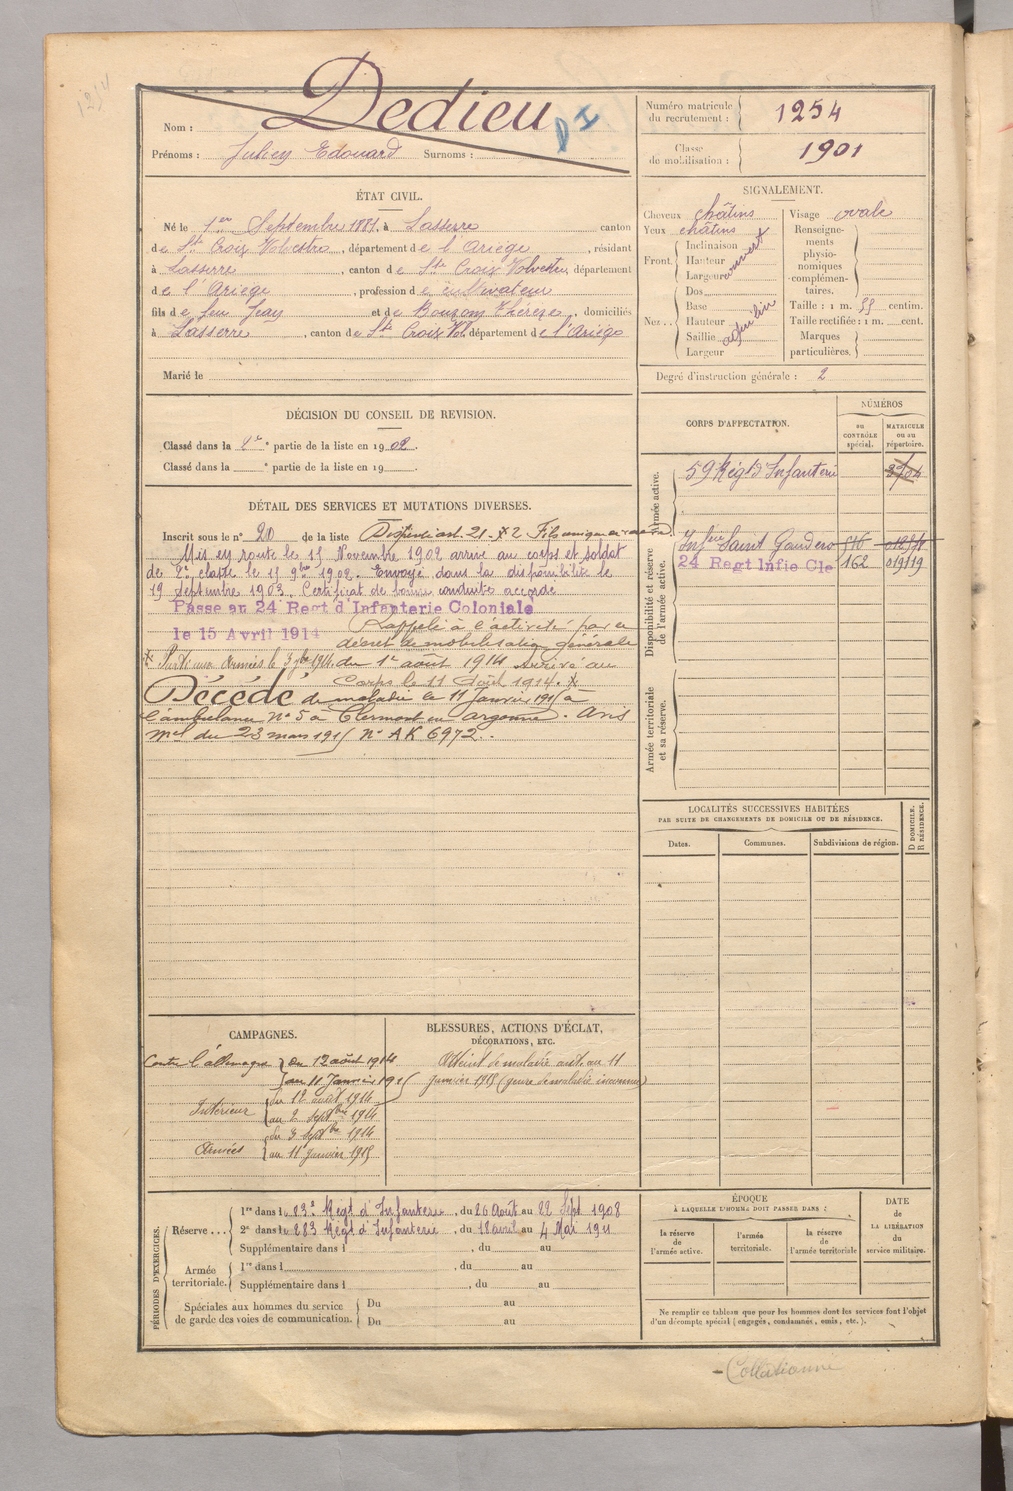 1254
Nom : Dedieu
DI
Prénoms : Julien Edouard Surnoms :
Numéro matricule du recrutement : 1254
Classe de mobilisation : 1901
ÉTAT CIVIL.
Né le 1er Septembre 1881, à Lasserre canton
de Ste Croix Volvestre, département de l'Ariège, résidant
à Lasserre, canton de Ste Croix Volvestre, département
de l'Ariège, profession de cultivateur
fils de feu Jean et de Bouzom Thérèse, domiciliés
à Lasserre, canton de Ste Croix Vol. département de l'Ariège
Marié le
SIGNALEMENT.
Cheveux châtins
Yeux châtins
Front. Inclinaison
Hauteur
Largeur
ouvert
Nez... Dos
Base
Hauteur
Saillie
Largeur
aquilin
Visage ovale
Renseigne-
ments
physio-
nomiques
complémen-
taires.
Taille : 1 m. 55 centim.
Taille rectifiée : 1 m. cent.
Marques
particulières.
Degré d'instruction générale : 2
DÉCISION DU CONSEIL DE REVISION.
Classé dans la 1re partie de la liste en 1902.
Classé dans la e partie de la liste en 19 .
DÉTAIL DES SERVICES ET MUTATIONS DIVERSES.
Inscrit sous le n° 20 de la liste Dispensé art. 21- 2 Fils unique de
Mis en route le 15 Novembre 1902 arrivé au corps et soldat
de 2e classe le 15 9bre 1902. Envoyé dans la disponibilité le
19 Septembre 1903. Certificat de bonne conduite accordé
Passé au 24 Regt d'Infanterie Coloniale
le 15 Avril 1914
Rappelé à l'activité par ce
décret de mobilisation générale
du 1er août 1914 Arrivé au
Corps le 11 Août 1914. x
x Parti aux Armées le 3 7bre 1914
Décédé de maladie le 11 Janvier 1915 à
l'ambulance N° 5 à Clermont en argonne. Avis
mel du 23 mars 1915 N° AK 6972.
CORPS D'AFFECTATION.
NUMÉROS
au CONTRÔLE spécial.
MATRICULE ou au répertoire.
Armée active.
59 Régt d'Infanterie
Disponibilité et réserve de l'armée active.
Infie Saint Gaudens 516
24 Regt Infie Cle 162 019119
Armée territoriale et sa réserve.
LOCALITÉS SUCCESSIVES HABITÉES
PAR SUITE DE CHANGEMENTS DE DOMICILE OU DE RÉSIDENCE.
Dates. Communes. Subdivisions de région.
D DOMICILE.
R RÉSIDENCE.
CAMPAGNES.
Contre l'allemagne du 12 août 1914
au 11 Janvier 1915
Intérieur du 12 août 1914
au 2 septbre 1914
Armées du 3 septbre 1914
au 11 Janvier 1915
BLESSURES, ACTIONS D'ÉCLAT,
DÉCORATIONS, ETC.
Atteint de maladie au 11
janvier 1915 (genre de maladie inconnu)
PÉRIODES D'EXERCICES.
Réserve... 1re dans le 83e Régt d'Infanterie, du 26 Août au 22 Sept 1908
2e dans le 283 Régt d'Infanterie, du 18 avril au 4 Mai 1911
Supplémentaire dans l , du au
Armée territoriale. 1re dans l , du au
Supplémentaire dans l , du au
Spéciales aux hommes du service
de garde des voies de communication.
Du au
Du au
ÉPOQUE
À LAQUELLE L'HOMME DOIT PASSER DANS :
la réserve de l'armée active.
l'armée territoriale.
la réserve de l'armée territoriale
DATE
de
LA LIBÉRATION
du
service militaire.
Ne remplir ce tableau que pour les hommes dont les services font l'objet
d'un décompte spécial (engagés, condamnés, omis, etc.).
Collationné